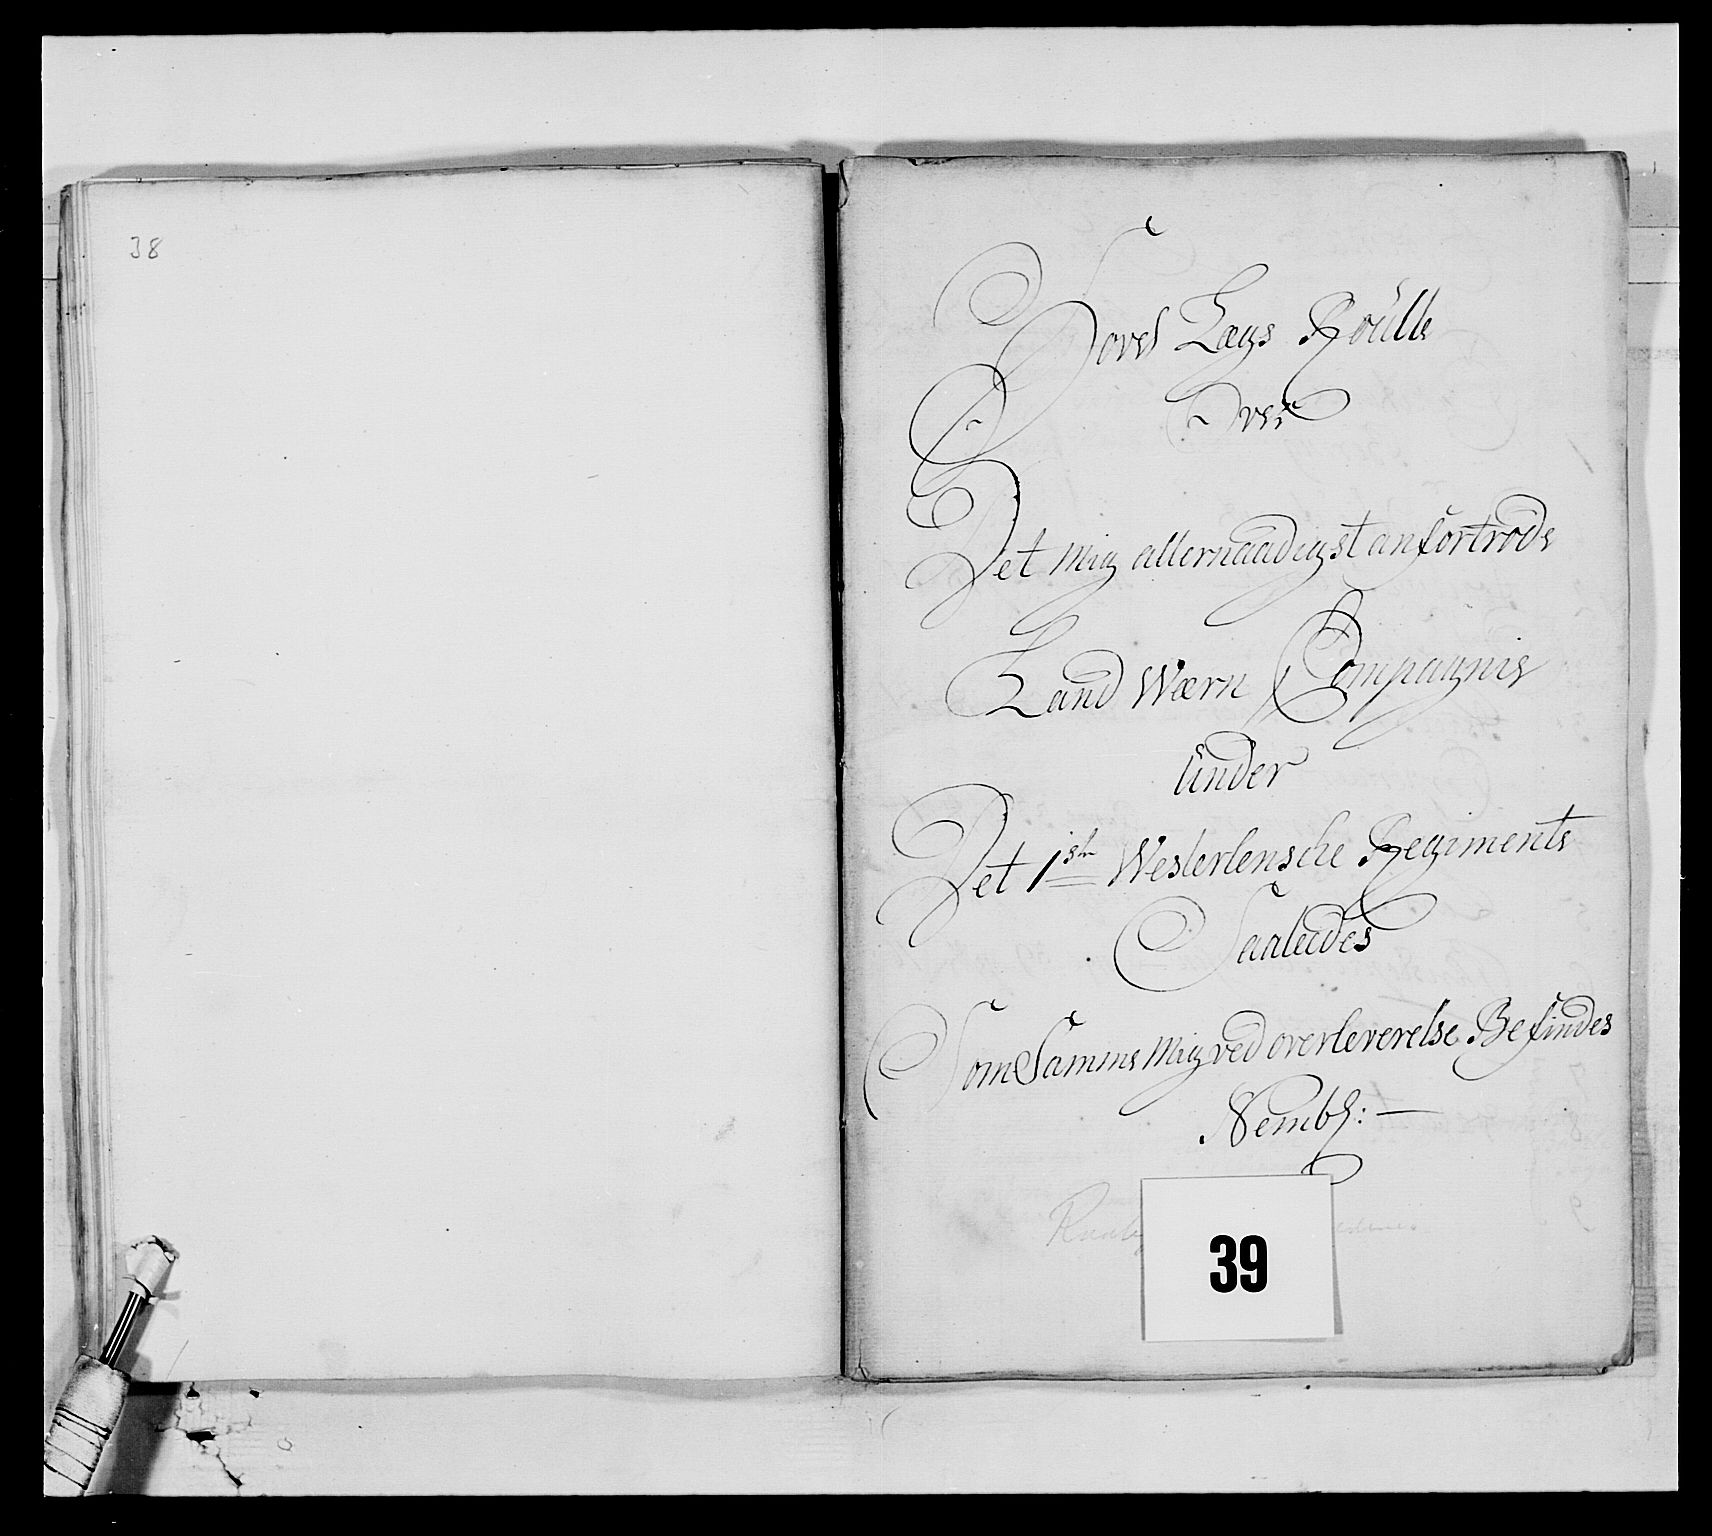 38
Hoved Lægs Roülle
Over
Det Mig allernaadigst anfortrode
Land Wærn Compagnie
Under
Det 1ste Westerlensche Regimente
Saaledes
Som Samme Mig ved overleverelse Befindes
Nembl: —
39